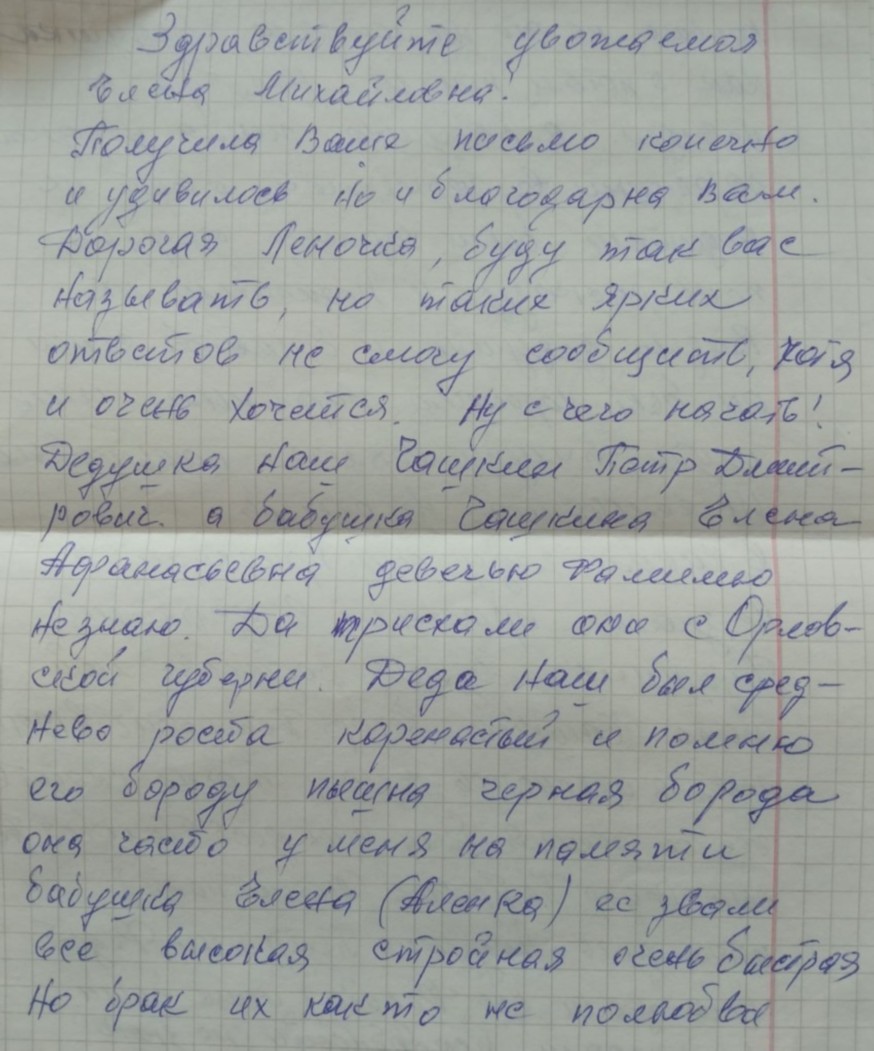 Здравствуйте уважаемая
Елена Михайловна!
Получила Ваше письмо конечно
и удивилось но и благодарна Вам.
Дорогая Леночка, буду так вас
называть, но таких ярких
ответов не смогу сообщить, хотя
и очень хочется. Ну с чего начать!
Дедушка наш Чашкин Петр Дмит-
рович. а бабушка Чашкина Елена
Афанасьевна девечью фамилию
не знаю. Да приехали они с Орлов-
ской губерни. Деда наш был сред-
нево роста коренастый и помню
его бороду пышна черная борода
она часто у меня на памяти
бабушка Елена (Аленка) ее звали
все высокая стройная очень быстрая
Но брак их как то не полюбве